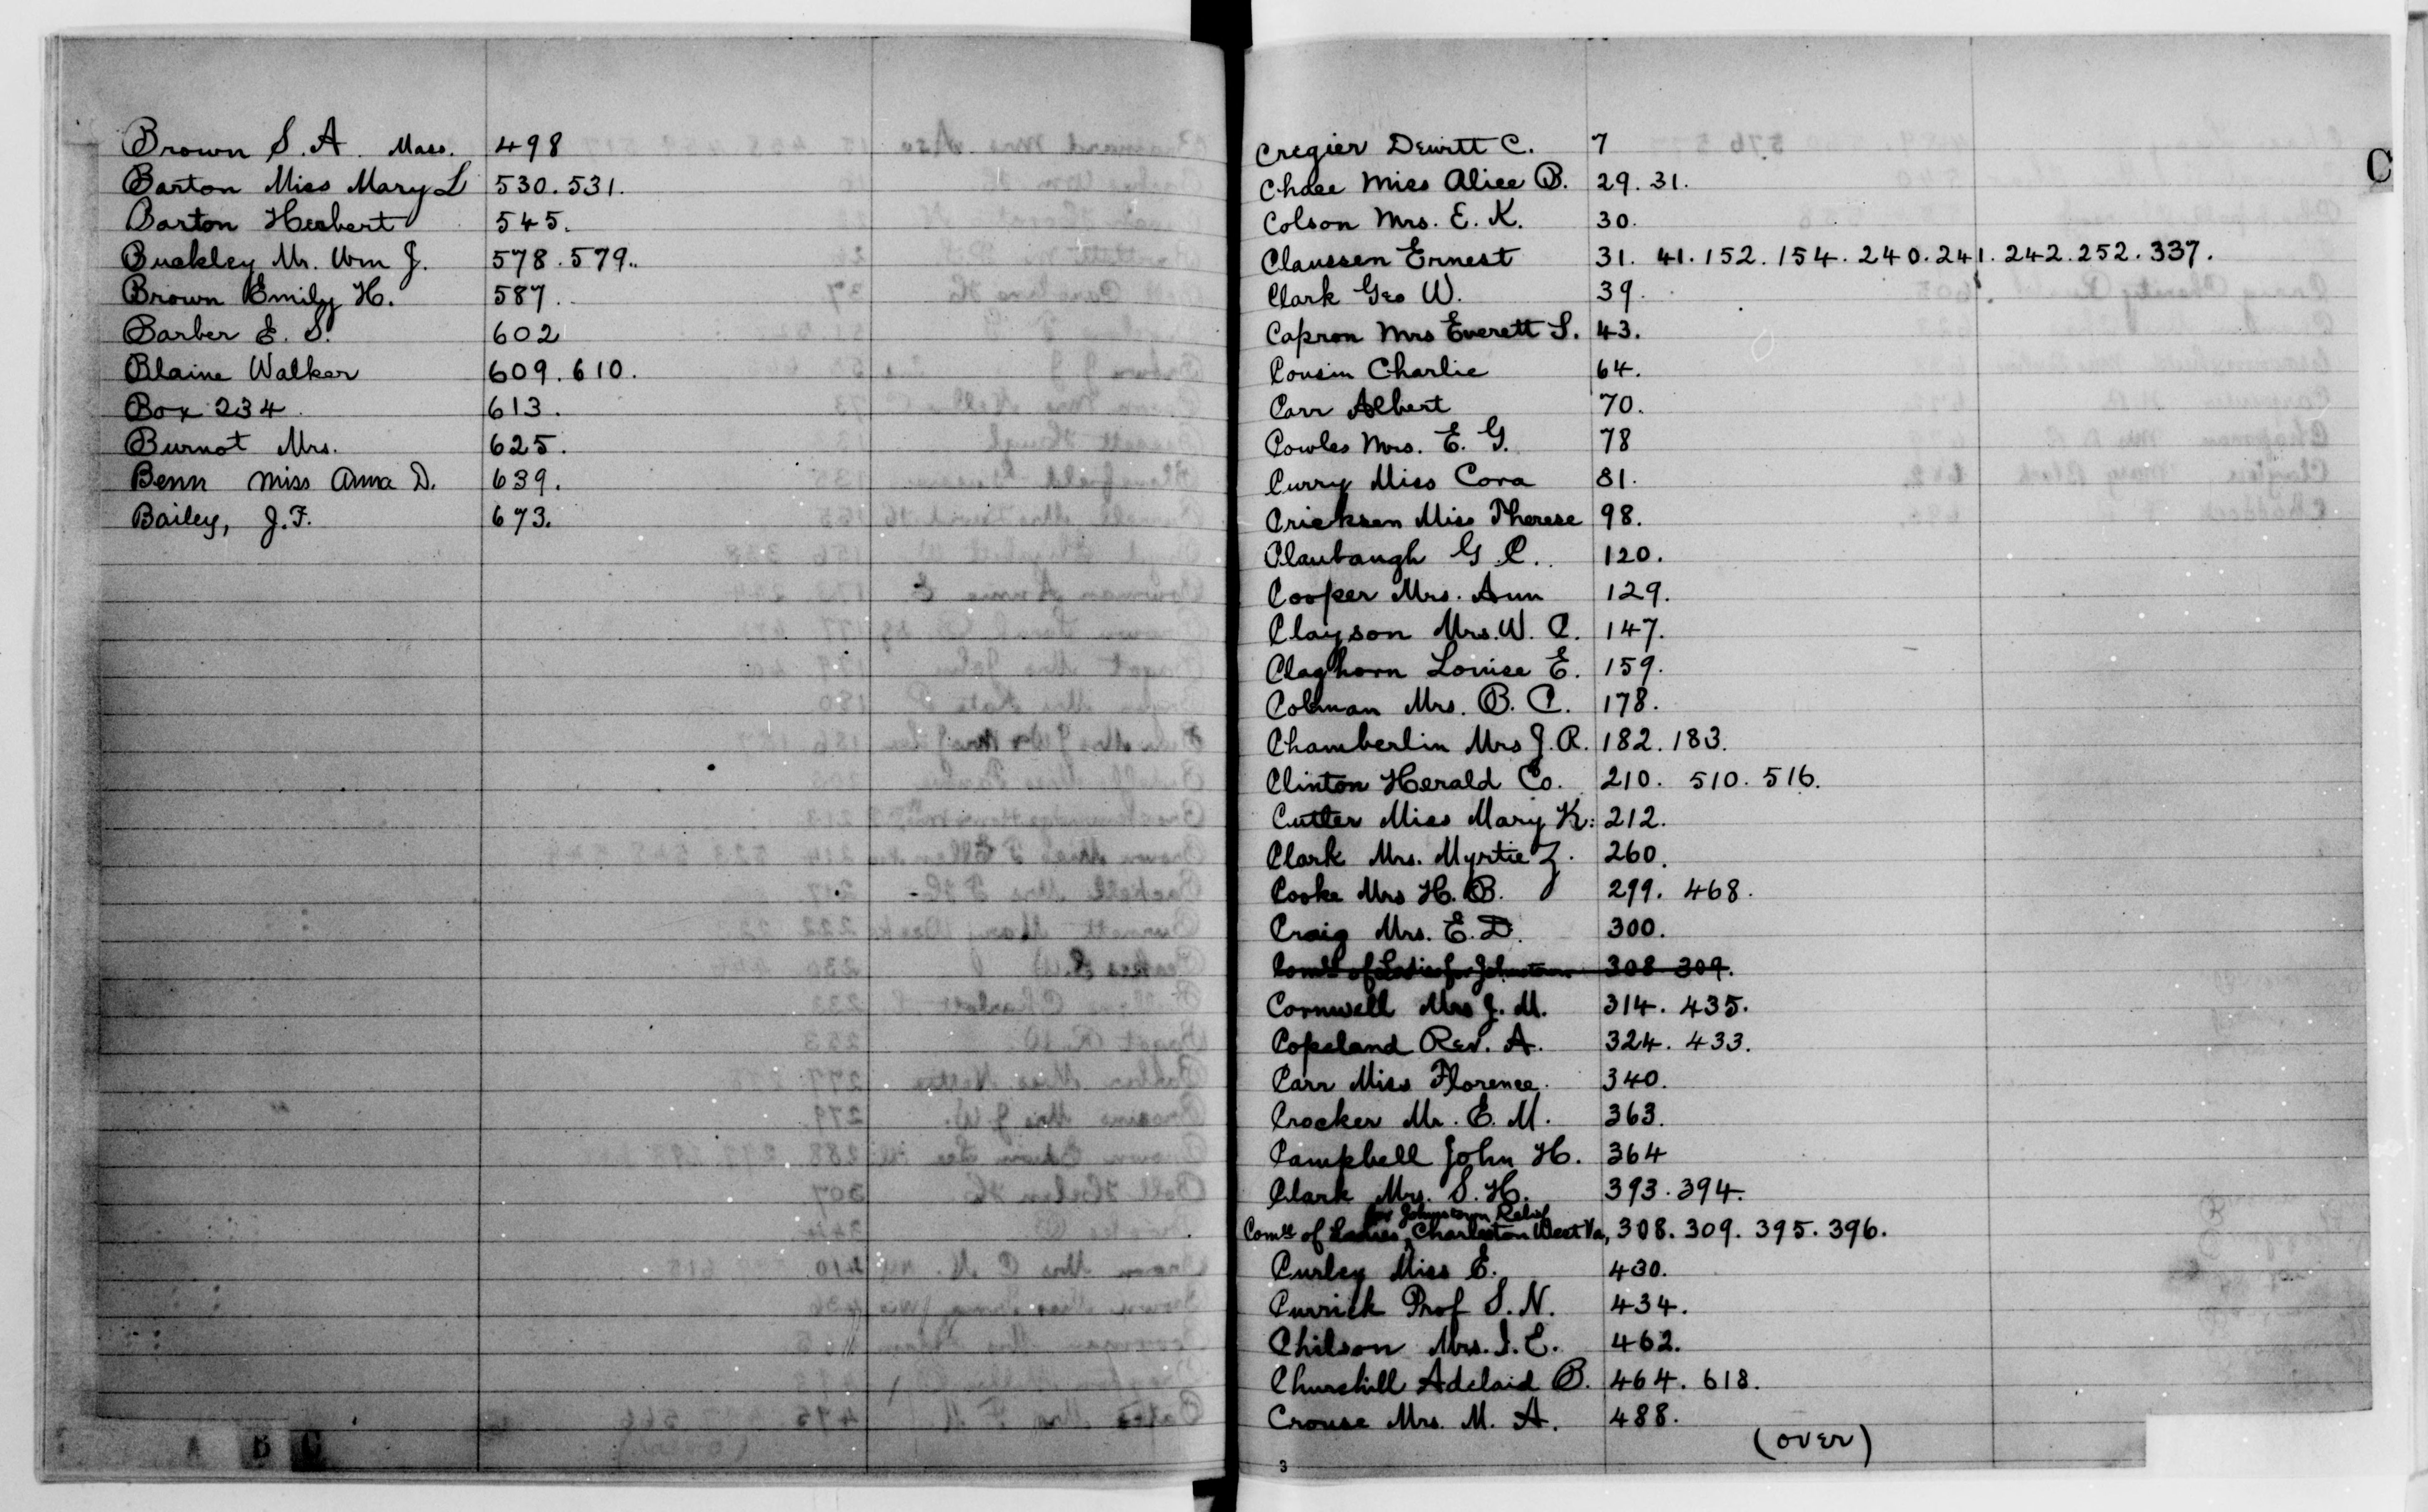 Brown S. A. Mass. 498
Barton Miss Mary L 530. 531.
Barton Herbert 545.
Buckley Mr. Wm J. 578. 579.
Brown Emily H. 587.
Barber E. S. 602
Blaine Walker 609. 610.
Box 234. 613.
Burnot Mrs. 625.
Benn Miss Anna D. 639.
Bailey, J. F. 673.
A B C
C
Cregier Dewitt C. 7
Chace Miss Alice B. 29. 31.
Colson Mrs. E. K. 30.
Claussen Ernest 31. 41. 152. 154. 240. 241. 242. 252. 337.
Clark Geo W. 39.
Capron Mrs Everett S. 43.
Cousin Charlie 64.
Carr Albert 70.
Cowles Mrs. E. G. 78
Curry Miss Cora 81.
Cricksen Miss Therese 98.
Claubaugh G. C. 120.
Cooper Mrs. Ann 129.
Clayson Mrs. W. C. 147.
Claghorn Louise E. 159.
Colman Mrs. B. C. 178.
Chamberlin Mrs J. R. 182. 183.
Clinton Herald Co. 210. 510. 516.
Cutler Miss Mary K. 212.
Clark Mrs. Myrtie Z. 260.
Cooke Mrs H. B. 299. 468.
Craig Mrs. E. D. 300.
Comte of Ladies for Johnstown 308 309.
Cornwell Mrs J. M. 314. 435.
Copeland Rev. A. 324. 433.
Carr Miss Florence. 340.
Crocker Mr. E. M. 363.
Campbell John H. 364
Clark Mrs. S. H. 393. 394.
for Johnstown Relief
Comte of Ladies, Charleston West Va, 308. 309. 395. 396.
Curley Miss E. 430.
Currick Prof S. N. 434.
Chilson Mrs. I. E. 462.
Churchill Adelaid B. 464. 618.
Crouse Mrs. M. A. 488.
(over)
3